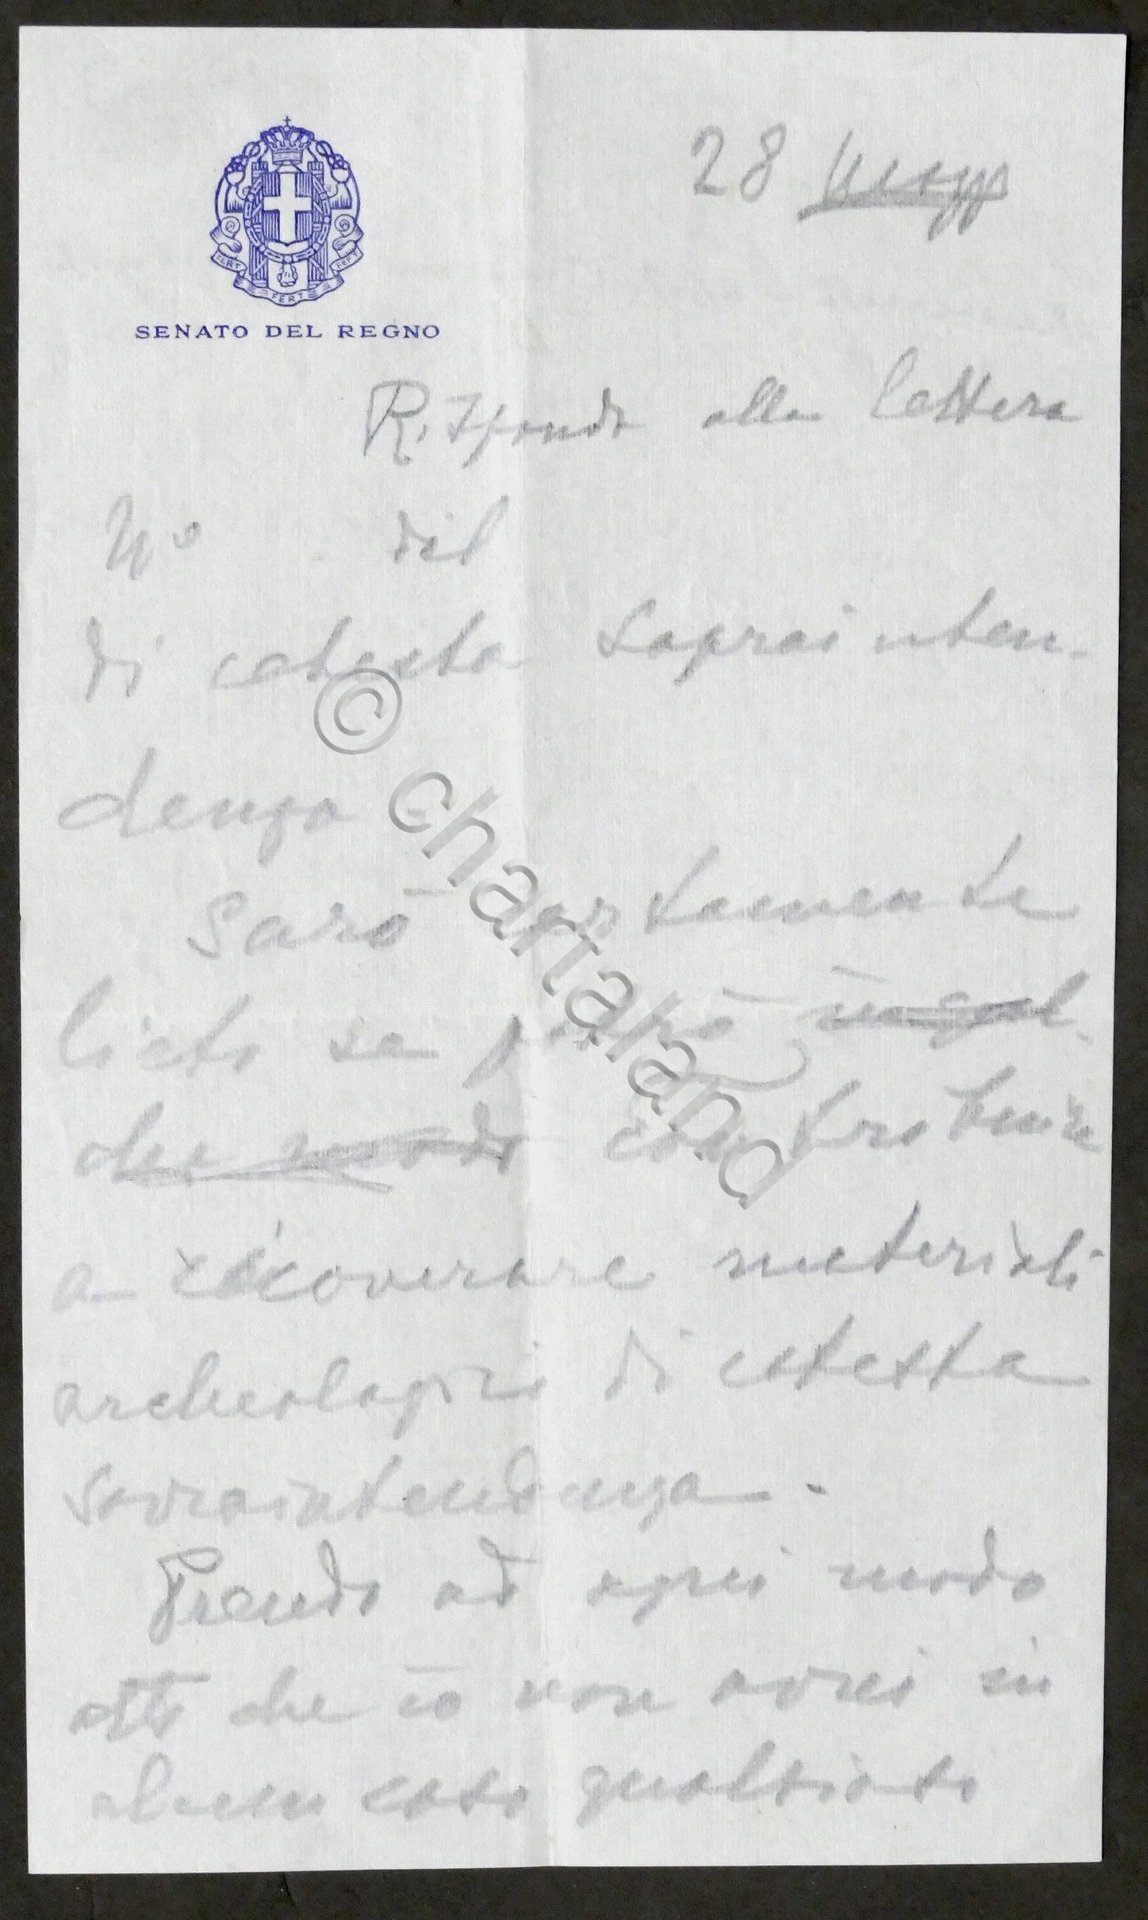 28 magg
FERT FERT FERT
SENATO DEL REGNO
Rispondo alla lettera
No del
di cotesta Soprainten-
denza -
Sarò certamente
lieto se potrò in qual-
che modo contribuire
a ricoverare materiali
archeologici di cotesta
Sovraintendenza.
Prendo ad ogni modo
atto che io non avrei in
alcun caso qualsiasi
© chartaland